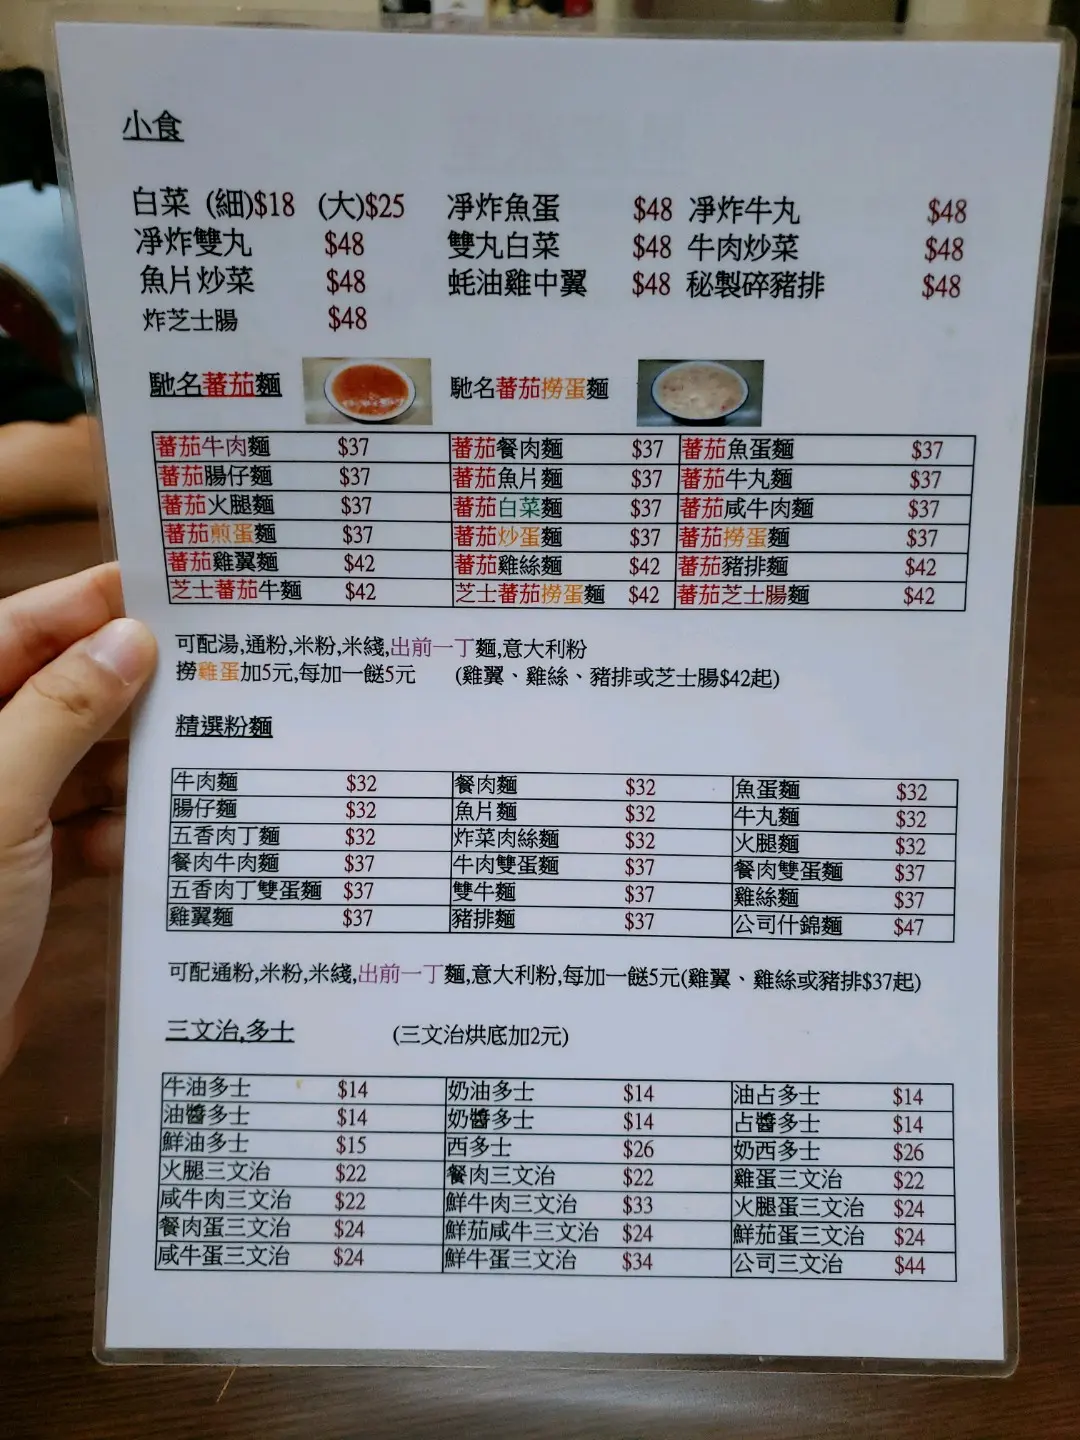 小食
白菜 (細)$18 (大)$25 凈炸魚蛋 $48 凈炸牛丸 $48
凈炸雙丸 $48 雙丸白菜 $48 牛肉炒菜 $48
魚片炒菜 $48 蚝油雞中翼 $48 秘製碎豬排 $48
炸芝士腸 $48
馳名蕃茄麵 馳名蕃茄撈蛋麵
蕃茄牛肉麵 $37 蕃茄餐肉麵 $37 蕃茄魚蛋麵 $37
蕃茄腸仔麵 $37 蕃茄魚片麵 $37 蕃茄牛丸麵 $37
蕃茄火腿麵 $37 蕃茄白菜麵 $37 蕃茄咸牛肉麵 $37
蕃茄煎蛋麵 $37 蕃茄炒蛋麵 $37 蕃茄撈蛋麵 $37
蕃茄雞翼麵 $42 蕃茄雞絲麵 $42 蕃茄豬排麵 $42
芝士蕃茄牛麵 $42 芝士蕃茄撈蛋麵 $42 蕃茄芝士腸麵 $42
可配湯,通粉,米粉,米綫,出前一丁麵,意大利粉
撈雞蛋加5元,每加一餸5元 (雞翼、雞絲、豬排或芝士腸$42起)
精選粉麵
牛肉麵 $32 餐肉麵 $32 魚蛋麵 $32
腸仔麵 $32 魚片麵 $32 牛丸麵 $32
五香肉丁麵 $32 炸菜肉絲麵 $32 火腿麵 $32
餐肉牛肉麵 $37 牛肉雙蛋麵 $37 餐肉雙蛋麵 $37
五香肉丁雙蛋麵 $37 雙牛麵 $37 雞絲麵 $37
雞翼麵 $37 豬排麵 $37 公司什錦麵 $47
可配通粉,米粉,米綫,出前一丁麵,意大利粉,每加一餸5元(雞翼、雞絲或豬排$37起)
三文治,多士 (三文治烘底加2元)
牛油多士 $14 奶油多士 $14 油占多士 $14
油醬多士 $14 奶醬多士 $14 占醬多士 $14
鮮油多士 $15 西多士 $26 奶西多士 $26
火腿三文治 $22 餐肉三文治 $22 雞蛋三文治 $22
咸牛肉三文治 $22 鮮牛肉三文治 $33 火腿蛋三文治 $24
餐肉蛋三文治 $24 鮮茄咸牛三文治 $24 鮮茄蛋三文治 $24
咸牛蛋三文治 $24 鮮牛蛋三文治 $34 公司三文治 $44